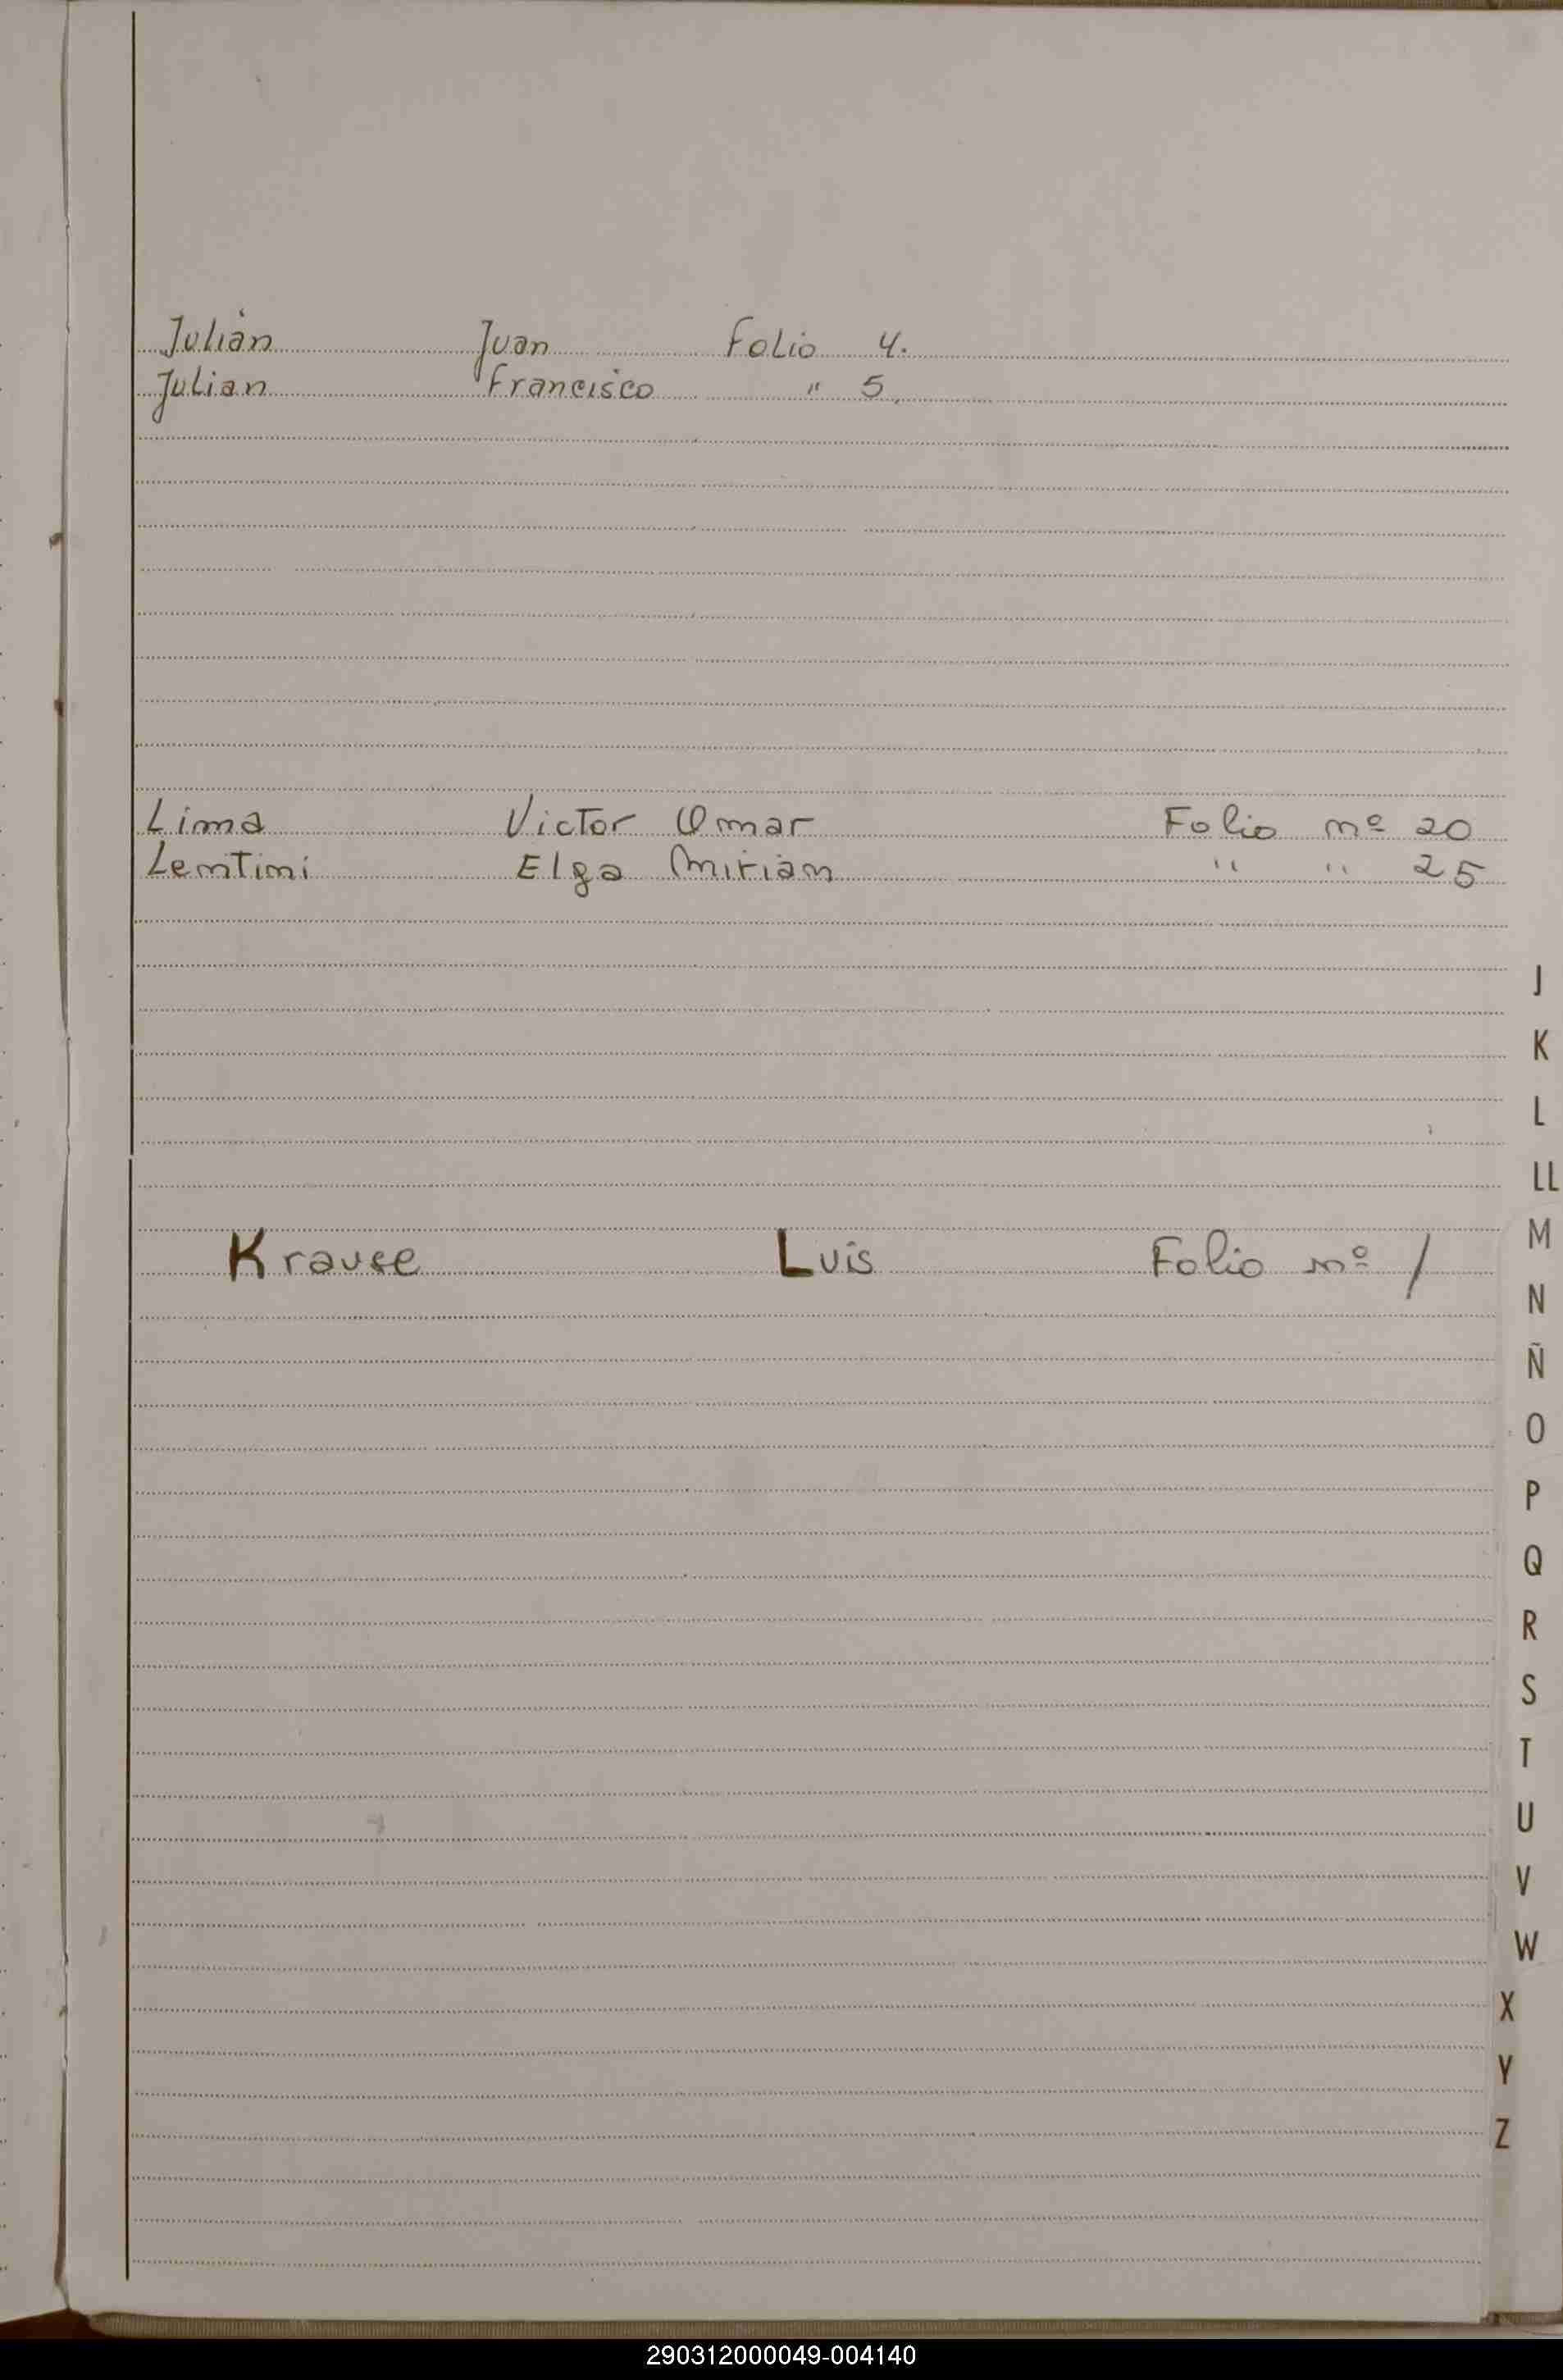 Julián Juan Folio 4.
Julian Francisco " 5.
Lima Victor Omar Folio nº 20
Lentini Elga Mirian " " 25
J
K
L
LL
M
Krause Luis Folio nº 1
N
Ñ
O
P
Q
R
S
T
U
V
W
X
Y
Z
290312000049-004140